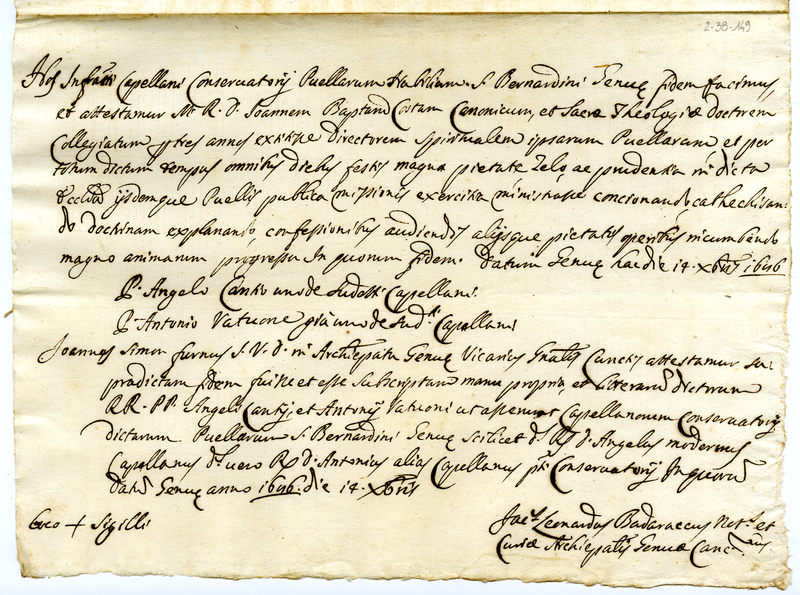 2-38-149
Nos Infrātti Capellani Conservatorij Puellarum S. Bernardini Genuę fidem facimus,
et attestamur M. R. D. Joannem Baptam Costam Canonicum, et Sacræ Theologiæ doctorem
Collegiatum p tres annos extitisse directorem Spiritualem ipsarum Puellarum et per
totum dictum tempus omnibus diebus festis magna pietate zelo, ac prudentia in dicta
Ecclīa ijsdemque Puellis publica missionis exercitia ministrasse concionando cathechisan:
do doctrinam explanando confessionibus audiendis alijsque pietatis operibus incumbendo
magno animarum progressu In quorum fidem. Datum Genuę hac die 14. Xbris 1696
P. Angelo Cantio uno de Capellani.
P. Antonio Vatuone già uno de Sud.ti Capellani
Joannes Simon furnus J. V. D. in Archiepatu Genuę Vicarius Gnālis Cunctis attestamur su:
pradictam fidem fuisse et esse subscriptam manu propria, et litterarū dictorum
RR. PP. Angeli Cantij, et Antonij Vatuoni ut asserunt Capellanorum Conservatorij
dictarum Puellarum S. Bernardini Genuę scilicet d. Rd d. Angelus modernus
Capellanus d. uero Rd d. Antonius alias Capellanus pti Conservatorij In quorū
Datū Genuę anno 1696. die 14. Xbris
Loco + Sigilli
Jac.s Leonardus Badaraccus Not.s et
Curiæ Archiepatis Genuæ Canc.rius